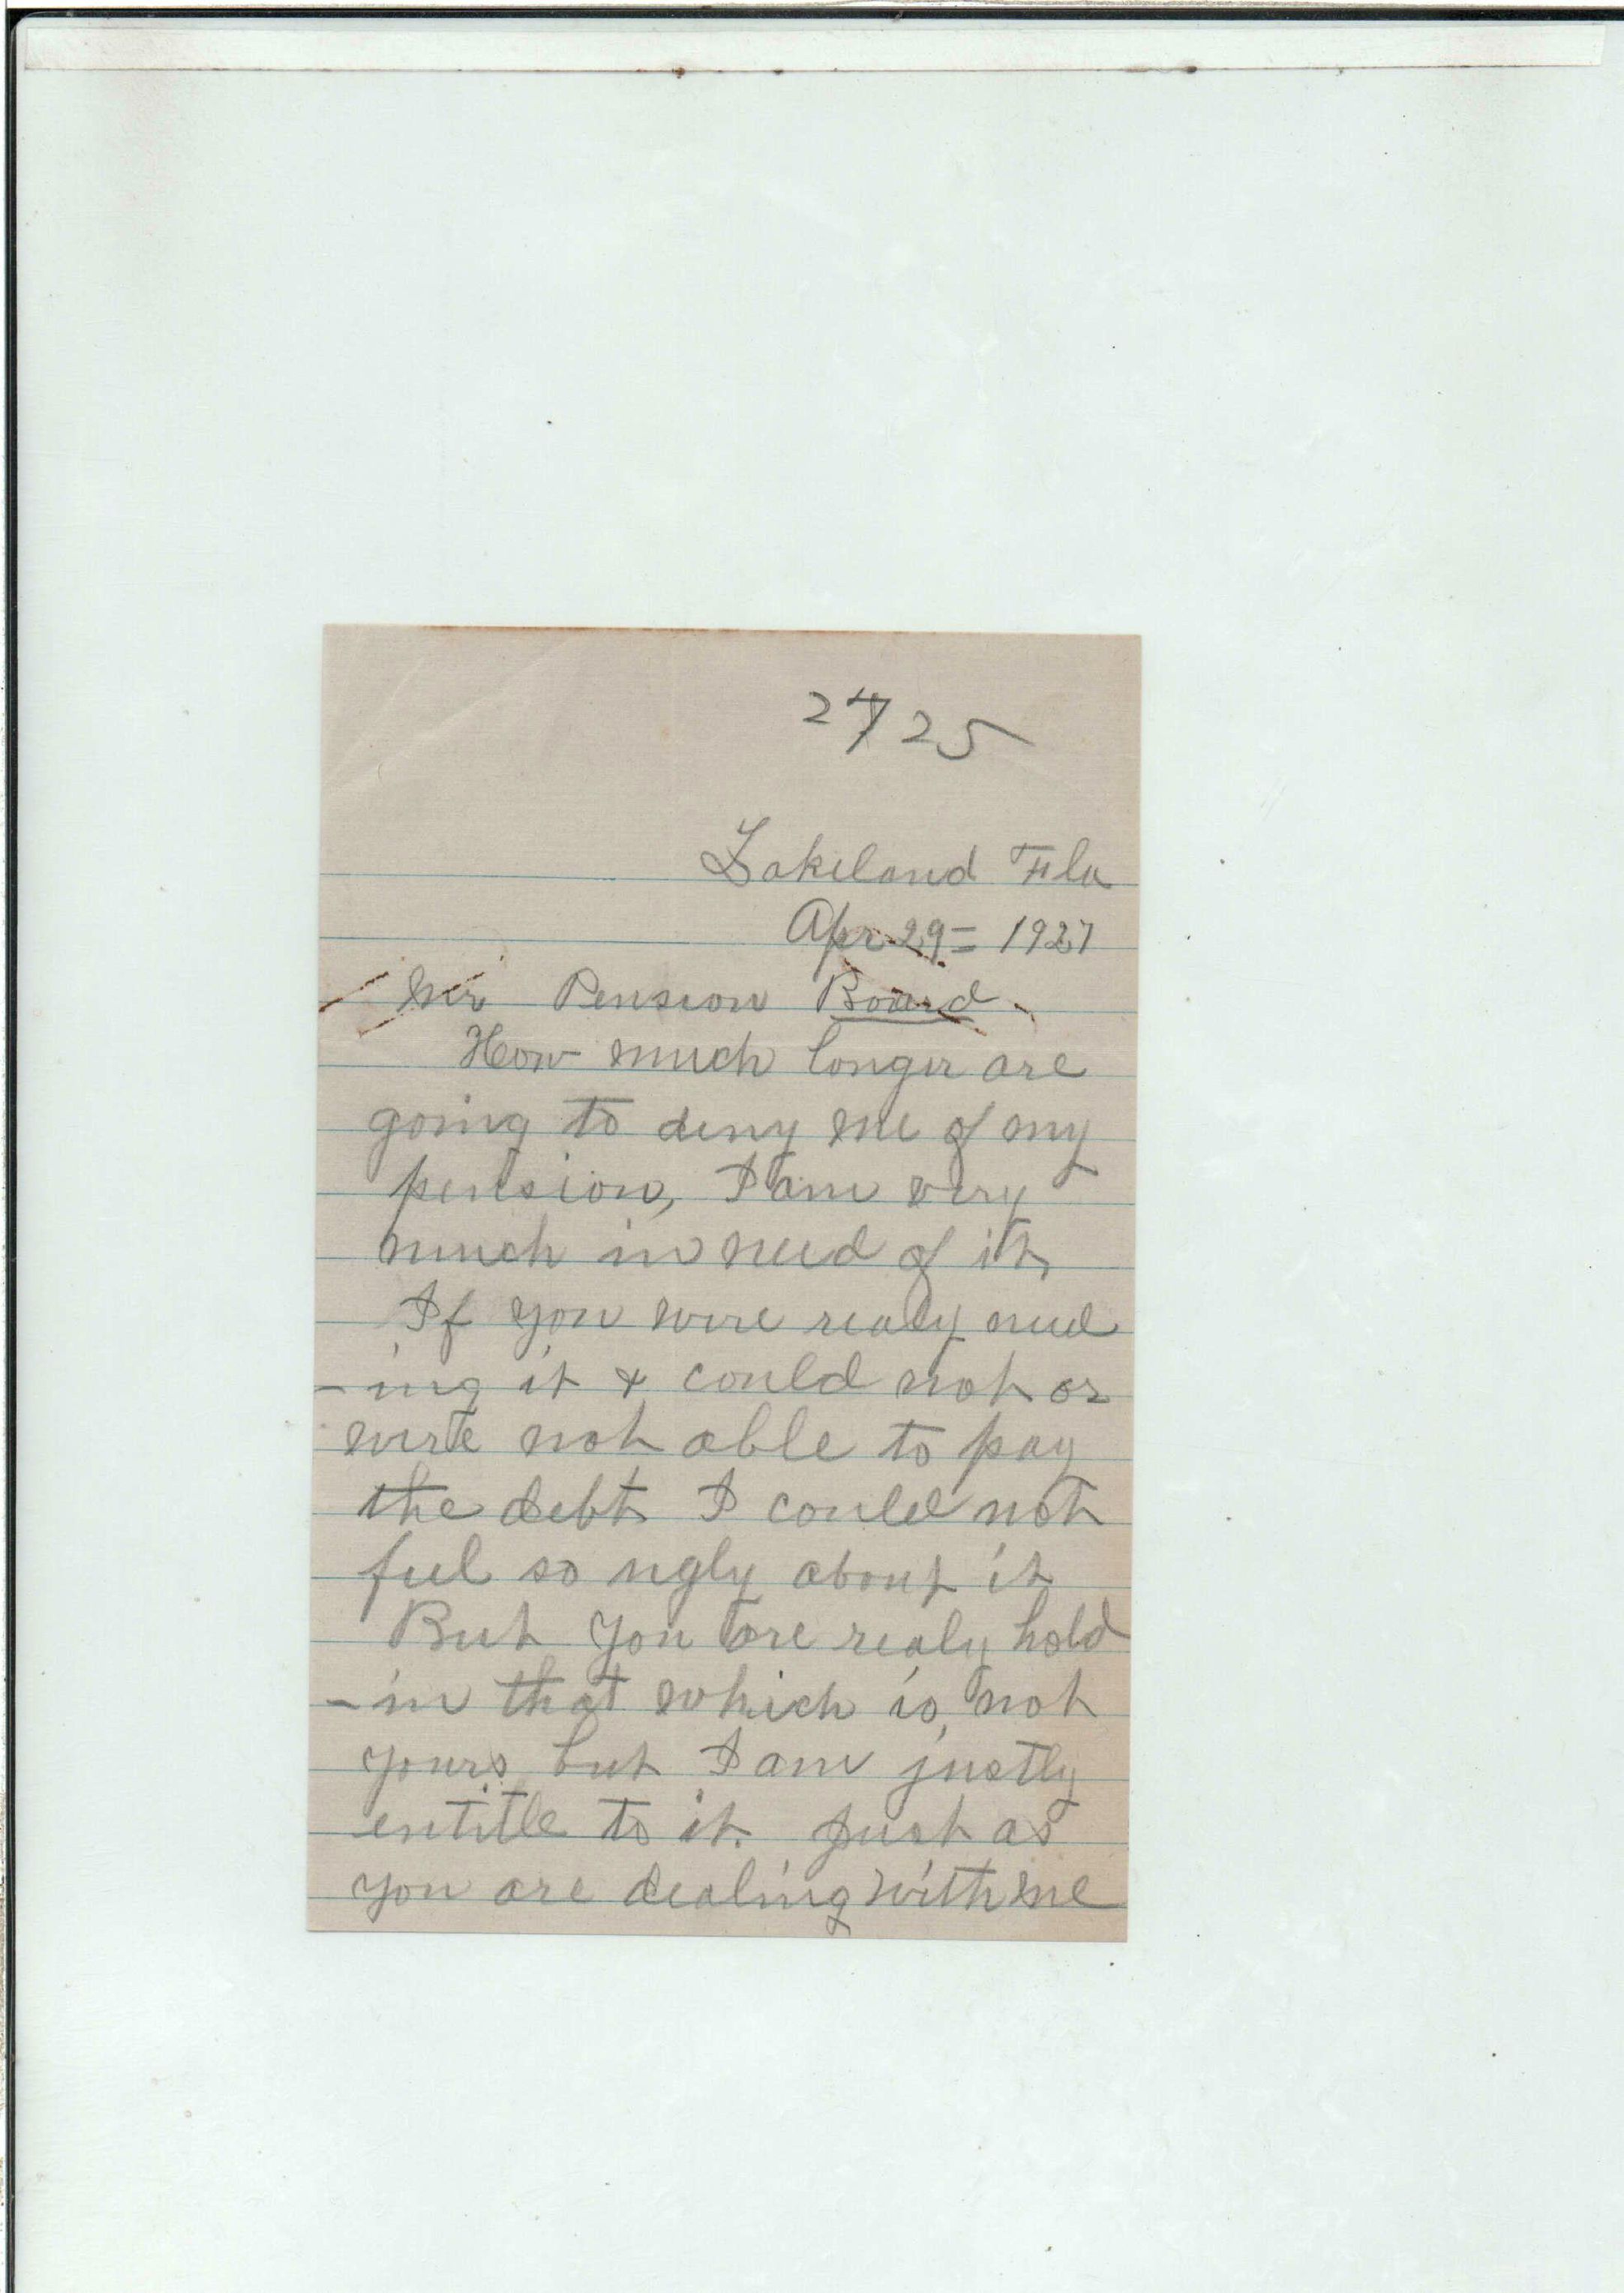 2725
Lakeland Fla
Apr 29= 1927
Mr Pension Board
How much longer are
going to deny me of my
pension, I am very
much in need of it,
If you were realy need
-ing it & could not or
were not able to pay
the debt I could not
feel so ugly about it
But you are realy hold
-in that which is not
yours but I am justly
entitle to it. Just as
you are dealing with me